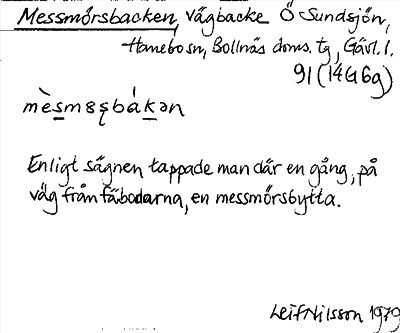 Messmörsbacken, vägbacke Ö Sundsjön,
Hanebo sn, Bollnäs doms. tg, Gävl. l.
91 (14G6g)
mèsmɞşbákən
Enligt sägnen tappade man där en gång, på
väg från fäbodarna, en messmörsbytta.
Leif Nilsson 1979